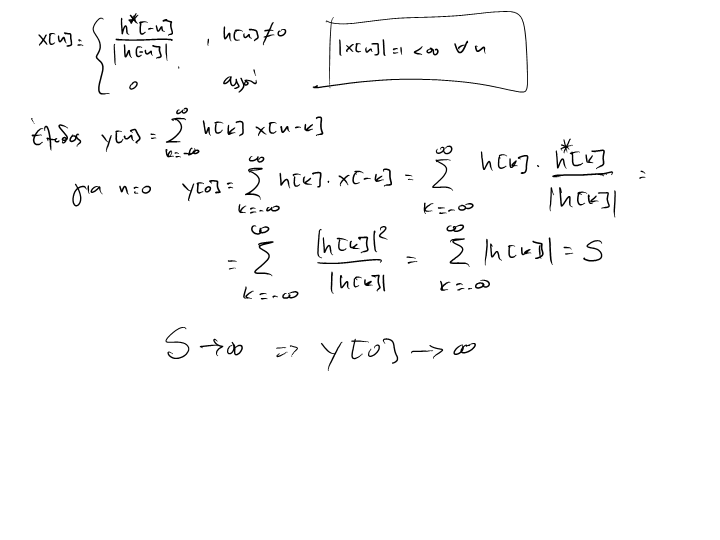 x[n] = { h*[-n] / |h[-n]| , h[n] ≠ 0
0 αλλού
|x[n]| = 1 < ∞ ∀ n
Έξοδος y[n] = ∑_{k=-∞}^{∞} h[k] x[n-k]
για n=0 y[0] = ∑_{k=-∞}^{∞} h[k] · x[-k] = ∑_{k=-∞}^{∞} h[k] · h*[k] / |h[k]| =
= ∑_{k=-∞}^{∞} |h[k]|² / |h[k]| = ∑_{k=-∞}^{∞} |h[k]| = S
S → ∞ => y[0] → ∞